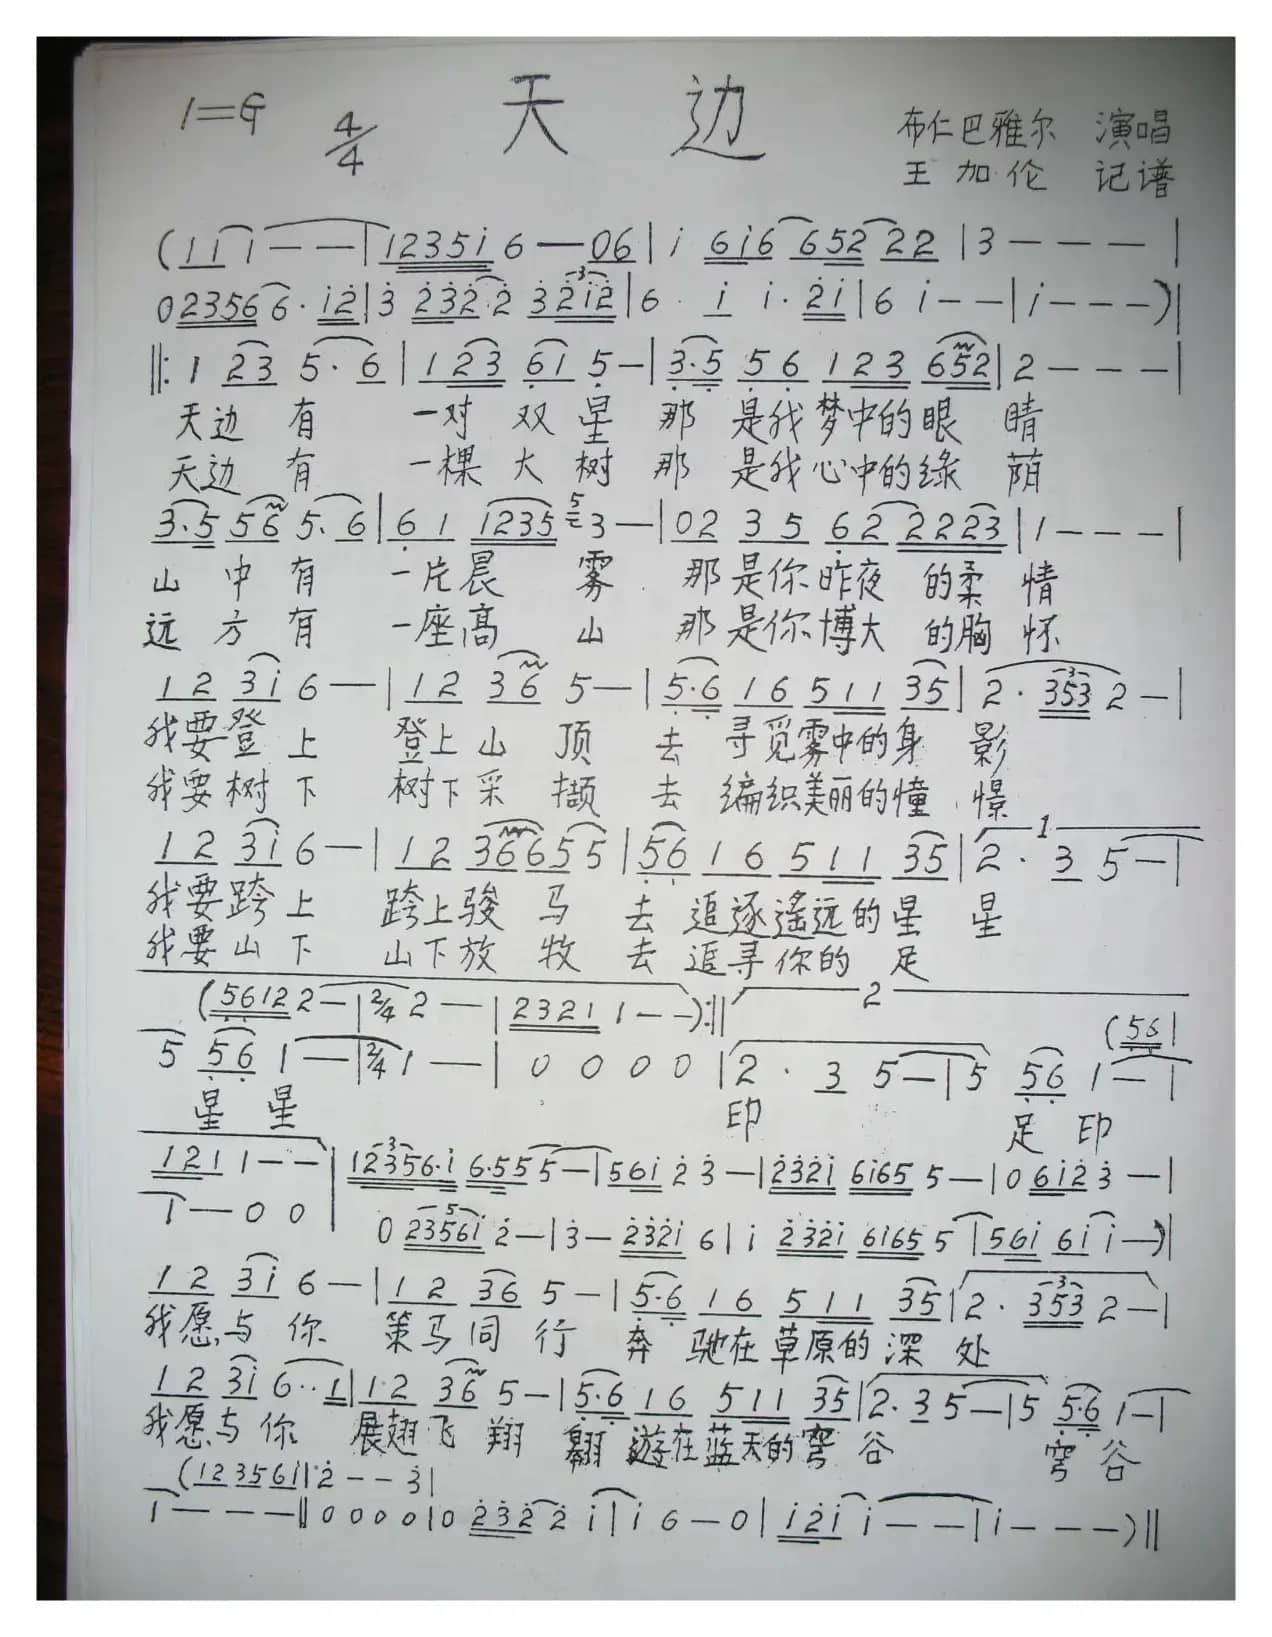 1=G 4/4 天 边
布仁巴雅尔 演唱
王加伦 记谱
(11 1 — — | 1235i 6 — 06 | i 6i6 652 22 | 3 — — — |
02356 6· i2 | 3 232·2 3 2i2 | 6 · i i· 2i | 6 i — — | i — — — )|
‖: 1 23 5· 6 | 1 23 61 5 — | 3·5 56 123 652 | 2 — — — |
天边 有 一对 双 星 那 是我 梦中的眼 睛
天边 有 一棵 大 树 那 是我 心中的绿 荫
3·5 56 5· 6 | 61 1235 5 3 — | 02 35 62 2223 | 1 — — — |
山 中 有 一片晨 雾 那是你昨夜 的柔 情
远 方 有 一座高 山 那是你博大 的胸 怀
12 3i 6 — | 12 36 5 — | 5·6 16 511 35 | 2 · 353 2 — |
我要登 上 登上山 顶 去 寻觅雾中的身 影
我要树 下 树下采 撷 去 编织美丽的憧 憬
12 3i 6 — | 12 36655 | 56 16 511 35 | 1 2 · 3 5 — |
我要跨上 跨上骏 马 去 追逐遥远的星 星
我要山下 山下放 牧 去 追寻你的 足
(56122 — | 2/4 2 — | 2321 1 — — ):‖ 2 (56|
5 56 1 — | 2/4 1 — | 0 0 0 0 | 2 · 3 5 — | 5 56 1 — |
星 星 印 足 印
121 1 — — | 12356·i 6·55 5 — | 56i 2 3 — | 232i 6i65 5 — | 0 6i2 3 — |
1 — 0 0 0 2356i 2 — | 3 — 232i 6 | i 232i 6i65 5 | 56i 6i i — )|
12 3i 6 — | 12 36 5 — | 5·6 16 511 35 | 2 · 353 2 — |
我愿与 你 策马同 行 奔 驰在草原的深 处
12 3i 6·· 1 | 12 36 5 — | 5·6 16 511 35 | 2·3 5 — | 5 5·6 1 — |
我愿与 你 展翅飞 翔 翱 遊在蓝天的穹 谷 穹 谷
(123561 | 2 — — 3 |
1 — — — ‖ 0 0 0 0 | 0 232 2 i | i 6 — 0 | i2i i — — | i — — — )‖